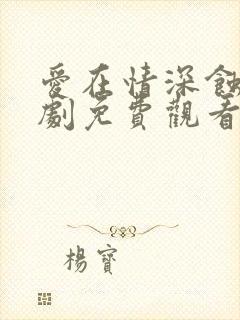 愛在情深蝕
劇免費觀看
楊寶